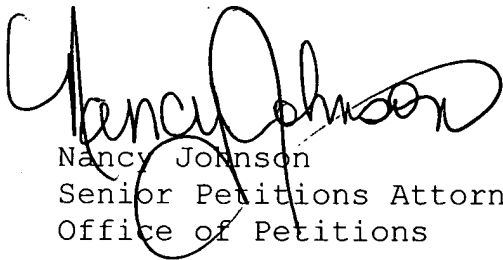 Nancy Johnson
Nancy Johnson
Senior Petitions Attorn
Office of Petitions